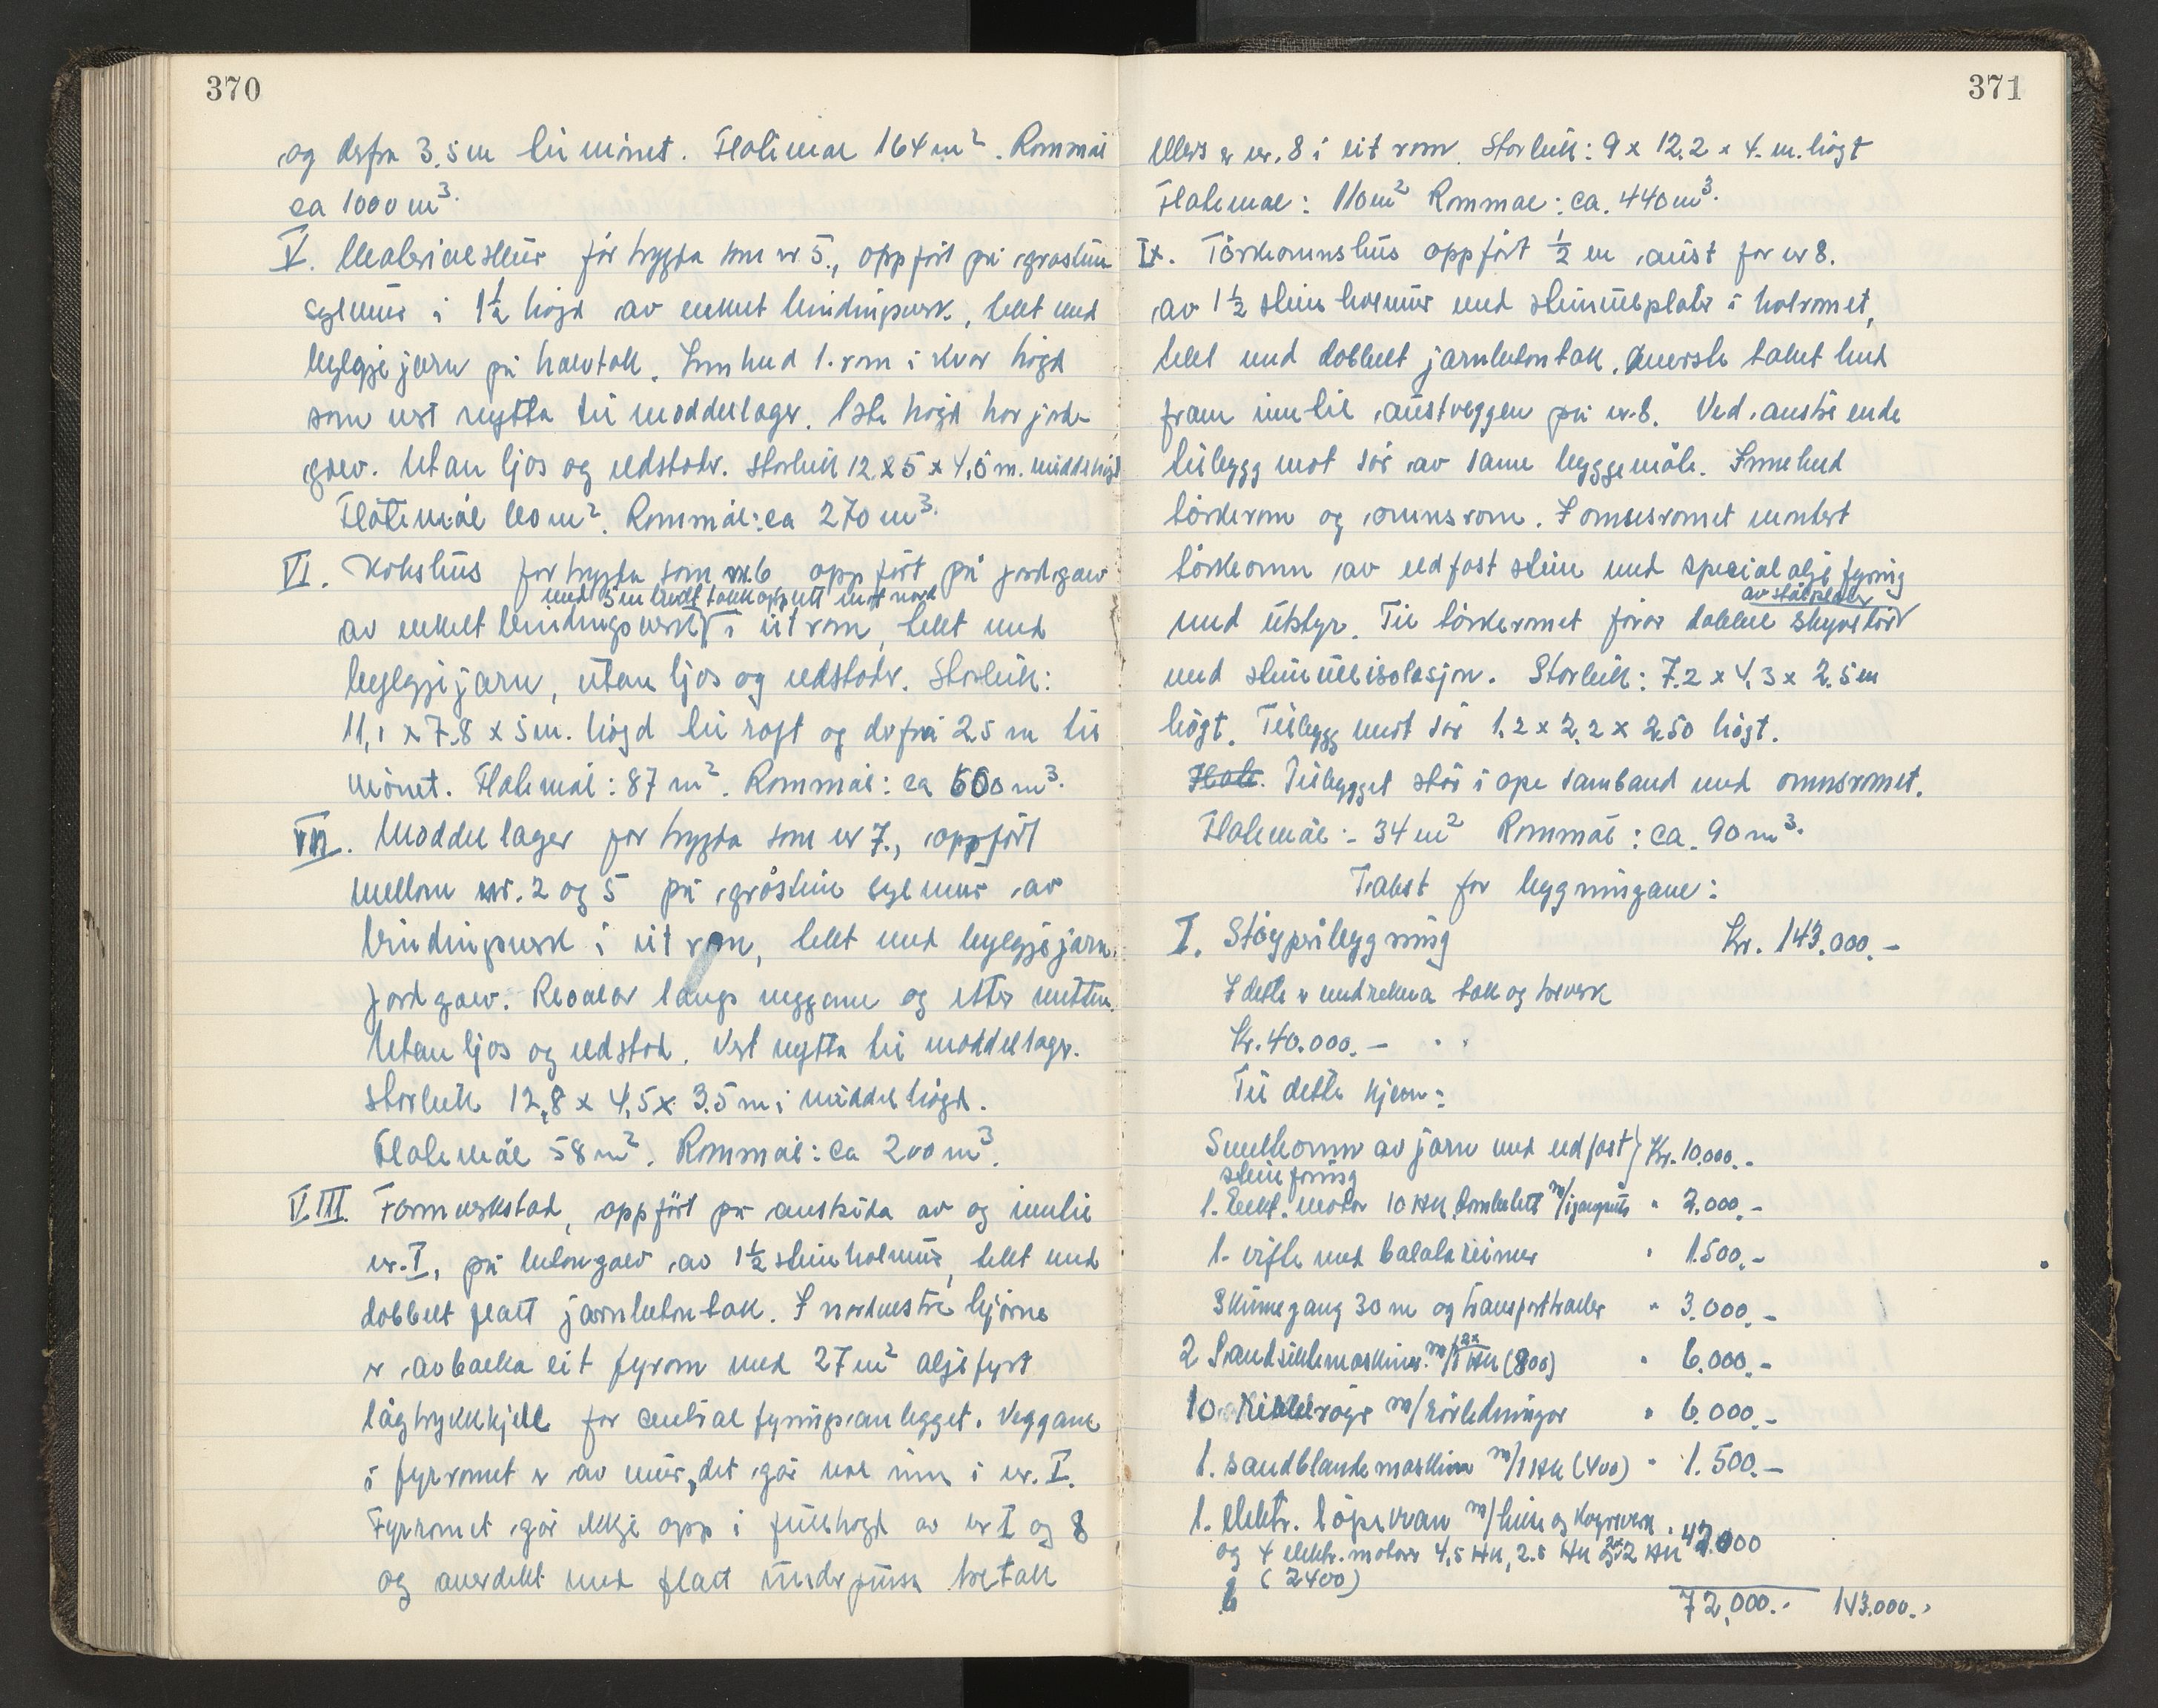 370
og derfra 3.5 m til mönet. Flatemål 164 m². Rommål
ca 1000 m³.
V. Materialskur for trygda som nr 5., oppfört på gråstein
sylmur i 1½ högd av enkelt bindingsverk, tekt med
bylgjejarn på halvtak. Innhud 1. rom i kvar högd
som vert nytta til modellager. 1ste högd har jord-
golv. Utan ljos og eldstader. Storleik 12 x 5 x 4,5 m. middelhögd
Flatemål 60 m². Rommål: ca 270 m³.
VI. Kokshus for trygda som nr. 6 oppfört på jordgolv
med 5 m bredt takk opplett mot nord
av enkelt bindingsverk i eit rom, tekt med
bylgjejarn, utan ljos og eldstader. Storleik:
11,1 x 7.8 x 5 m. högd til raft og derfrå 2.5 m til
mönet. Flatemål: 87 m². Rommål: ca 600 m³.
VII. Modellager for trygda som nr 7., oppfört
mellom nr. 2 og 5 på gråstein sylmur av
bindingsverk i eit rom, tekt med bylgjejarn.
Jordgolv. Reoler langs veggane og etter mitten.
Utan ljos og eldstad. Vert nytta til modellager.
Storleik 12,8 x 4,5 x 3.5 m i middelhögd.
Flatemål 58 m². Rommål: ca 200 m³.
VIII. Formverkstad, oppfört på austsida av og inntil
nr. I, på betongolv av 1½ stein holmur, tekt med
dobbelt flatt jarnbetontak. I nordvestre hjörne
er avbalka eit fyrrom med 27 m² oljefyrt
lågtrykkkjele for centralfyringsanlegget. Veggane
i fyrromet er av mur, det går noe inn i nr. I.
Fyrromet går ikkje opp i full högd av nr I og 8
og overdekt med flatt underpussa tretak
371
Ellers er nr. 8 i eit rom. Storleik: 9 x 12.2 x 4. m. högt
Flatemål: 110 m² Rommål: ca. 440 m³.
IX. Törkeomnshus oppfört ½ m aust for nr 8.
av 1½ stein holmur med steinullplater i holromet,
tekt med dobbelt jarnbetontak. Överste taket hud
fram inntil austveggen på nr. 8. Ved austre ende
tilbygg mot sör av same byggemåte. Innehud
törkerom og omnsrom. I omnsromet montert
törkeomn av eldfast stein med special oljefyring
av stålplater
med utstyr. Til törkeromet förer dobbel skyvedör
med steinullisolasjon. Storleik: 7.2 x 4.3 x 2.5 m
högt. Tilbygg mot sör 1.2 x 2.2 x 2.50 högt.
Flate. Tilbygget står i ope samband med omnsromet.
Flatemål: 34 m² Rommål: ca. 90 m³.
Takst for bygningane:
I. Stöyperibygning Kr. 143.000.-
I dette er medrekna tak og treverk
Kr. 40.000.-
Til dette kjem:
Smelteomn av jarn med eldfast } Kr. 10.000.-
steinforing
1. Elekt. motor 10 HK komplett m/igangsets " 2.000.-
1. vifte med balata reimer " 1.500.-
Skinnegang 30 m og transporttraller " 3.000.-
2 Sandsiktemaskiner m/2x1 HK (800) " 6.000.-
10 m/rörledningar " 6.000.-
1. sandblandemaskin m/1 HK (400) " 1.500.-
1. elektr. löpekran m/heise og köyreverk
og 4 elektr. motorer 4,5 HK, 2.5 HK og 2x2 HK " 42.000
(2400)
72,000.- 143.000.-